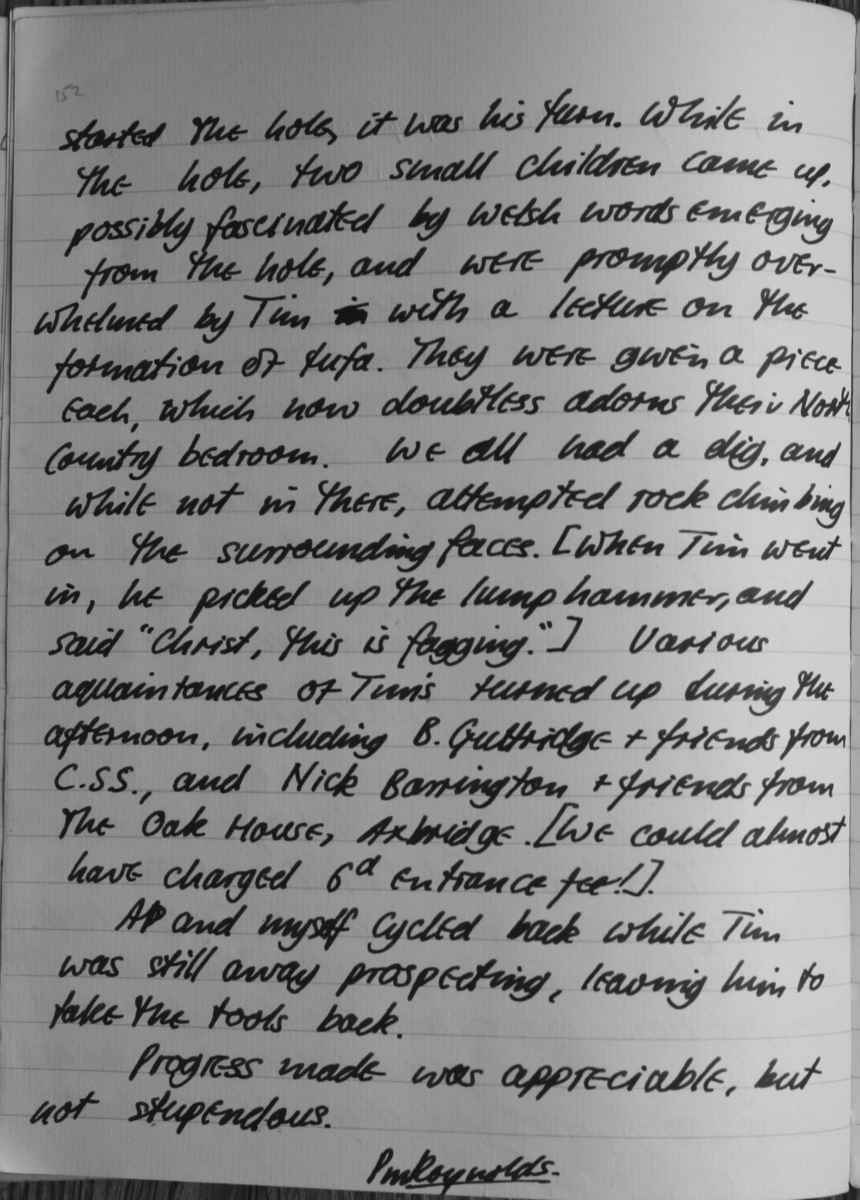 152
started the hole, it was his turn. While in
the hole, two small children came up,
possibly fascinated by Welsh words emerging
from the hole, and were promptly over-
whelmed by Tim with a lecture on the
formation of tufa. They were given a piece
each, which now doubtless adorns their North
Country bedroom. We all had a dig, and
while not in there, attempted rock climbing
on the surrounding faces. [When Tim went
in, he picked up the lump hammer, and
said "Christ, this is fagging."] Various
aquaintances of Tim's turned up during the
afternoon, including B. Guttridge + friends from
C.S.S., and Nick Barrington + friends from
The Oak House, Axbridge. [We could almost
have charged 6d entrance fee!].
AP and myself cycled back while Tim
was still away prospecting, leaving him to
take the tools back.
Progress made was appreciable, but
not stupendous.
PMReynolds.